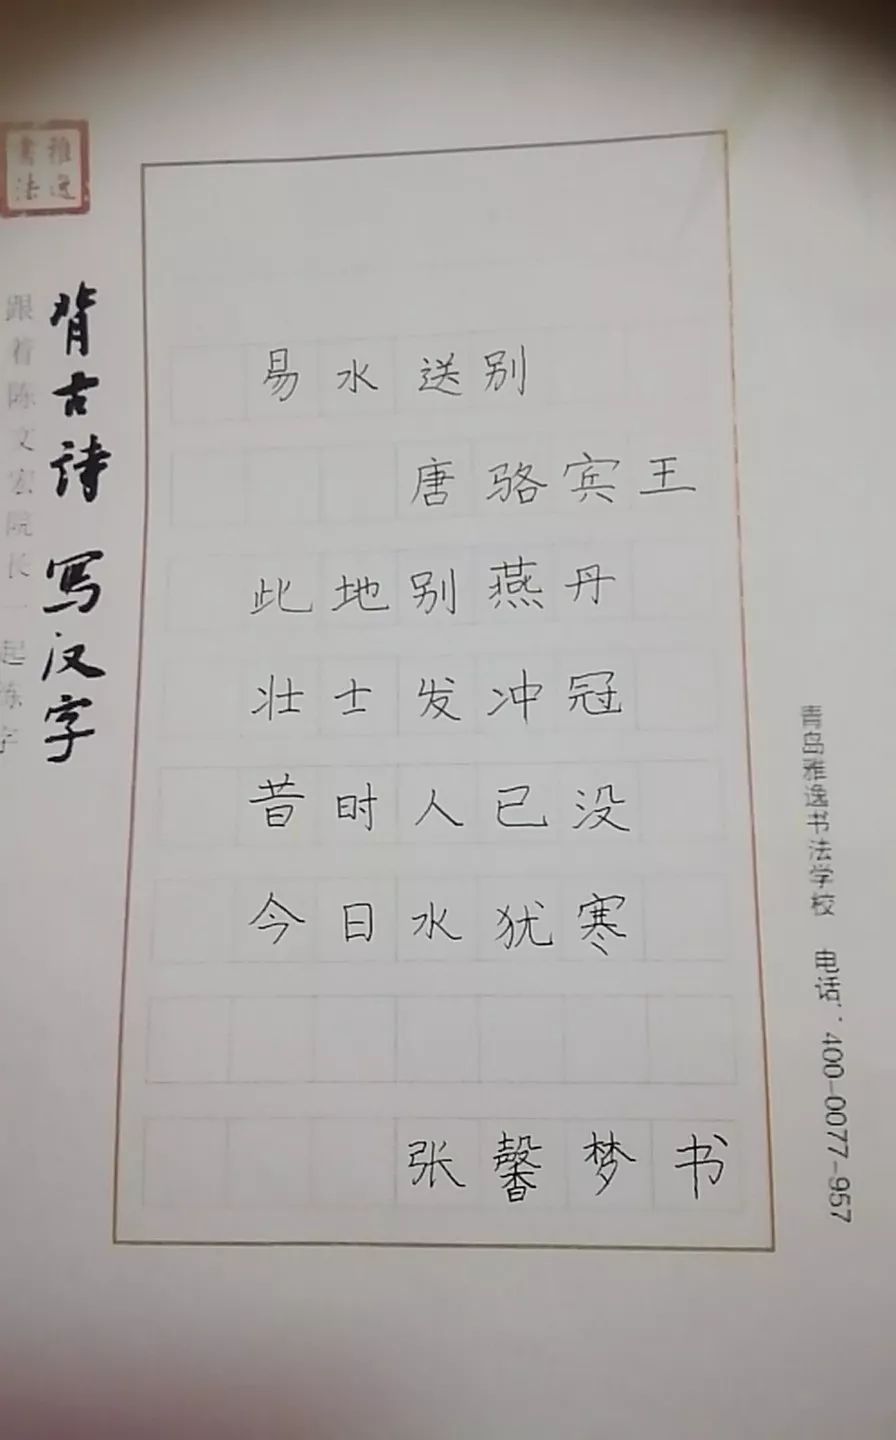 雅逸
書法
背古诗 写汉字
跟着陈文宏院长一起练字
易水送别
唐骆宾王
此地别燕丹
壮士发冲冠
昔时人已没
今日水犹寒
张馨梦书
青岛雅逸书法学校 电话:400-0077-957